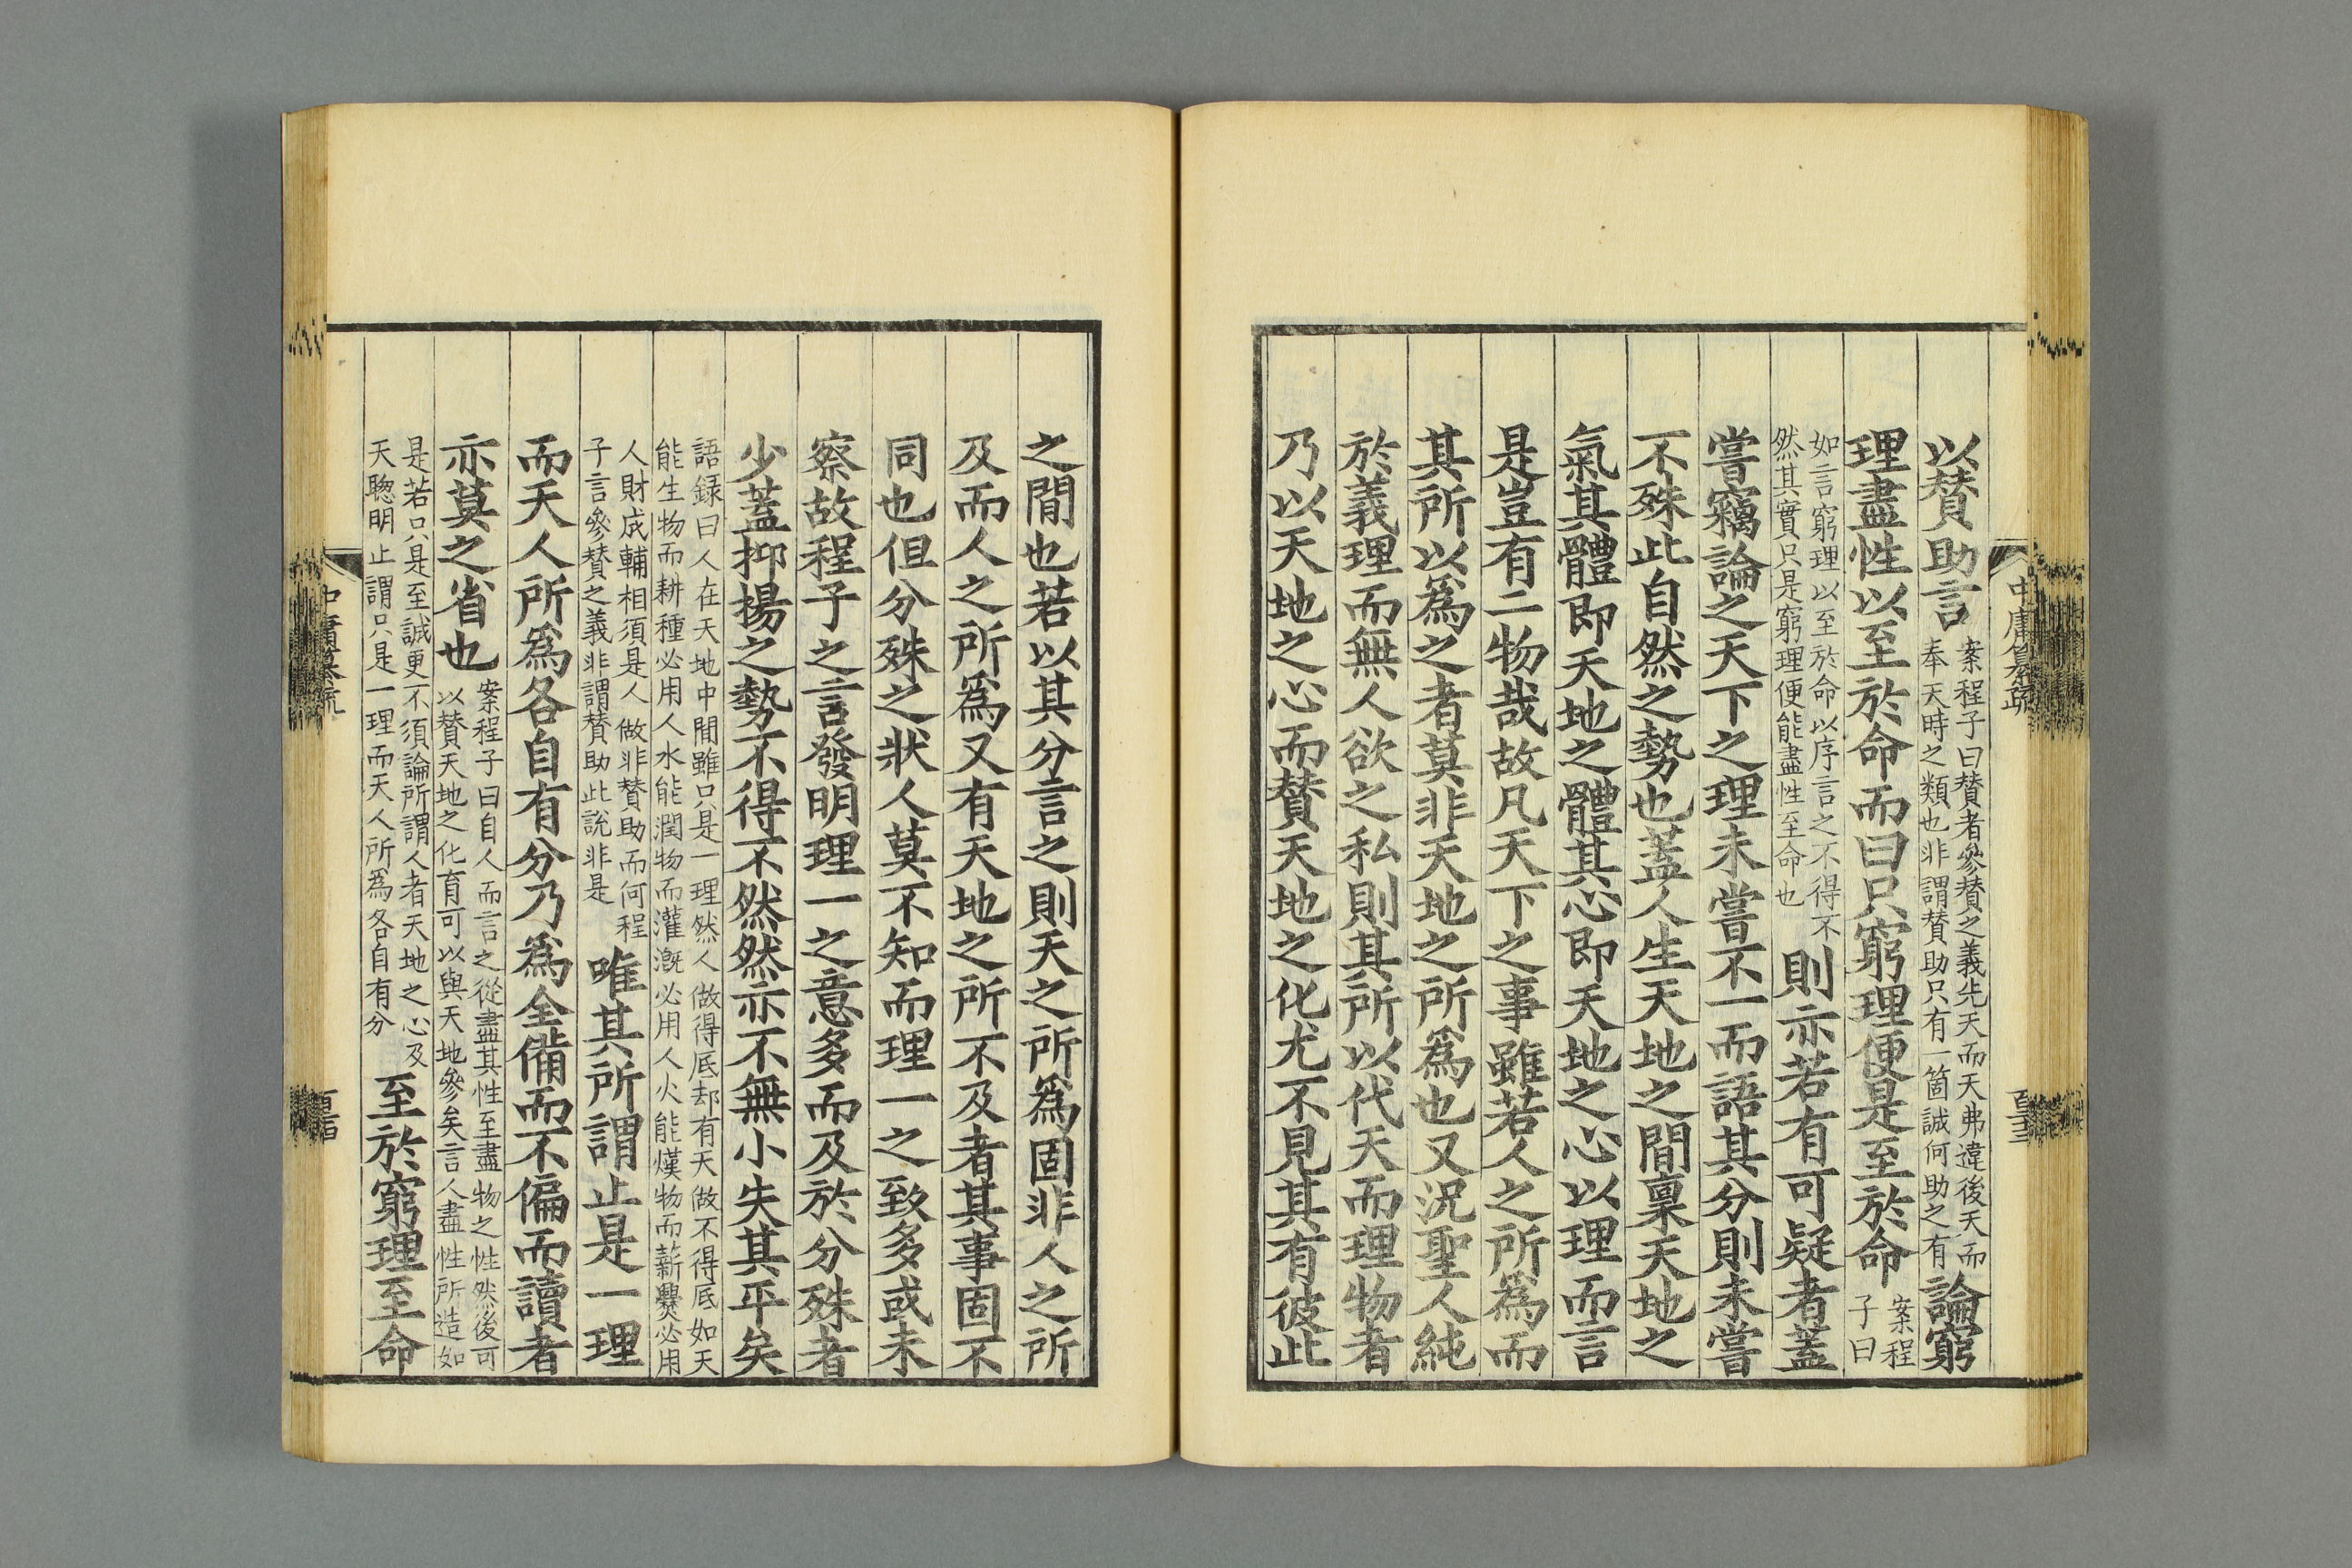 以賛助言案程子曰賛者參賛之義先天而天弗違後天而奉天時之類也非謂賛助只有一箇誠何助之有論窮
理盡性以至於命而曰只窮理便是至於命案程子曰
如言窮理以至於命以序言之不得不然其實只是窮理便能盡性至命也則亦若有可疑者蓋
嘗竊論之天下之理未嘗不一而語其分則未嘗
不殊此自然之勢也蓋人生天地之間稟天地之
氣其體即天地之體其心即天地之心以理而言
是豈有二物哉故凡天下之事雖若人之所爲而
其所以爲之者莫非天地之所爲也又況聖人純
於義理而無人欲之私則其所以代天而理物者
乃以天地之心而賛天地之化尤不見其有彼此
中庸纂疏
百三
之間也若以其分言之則天之所爲固非人之所
及而人之所爲又有天地之所不及者其事固不
同也但分殊之狀人莫不知而理一之致多或未
察故程子之言發明理一之意多而及於分殊者
少蓋抑揚之勢不得不然然亦不無小失其平矣
語録曰人在天地中間雖只是一理然人做得底却有天做不得底如天能生物而耕種必用人水能潤物而灌漑必用人火能熯物而薪爨必用
人財成輔相須是人做非賛助而何程子言參賛之義非謂賛助此說非是唯其所謂止是一理
而天人所爲各自有分乃爲全備而不偏而讀者
亦莫之省也案程子曰自人而言之從盡其性至盡物之性然後可以賛天地之化育可以與天地參矣言人盡性所造如
是若只是至誠更不須論所謂人者天地之心及天聰明止謂只是一理而天人所爲各自有分至於窮理至命
中庸纂疏